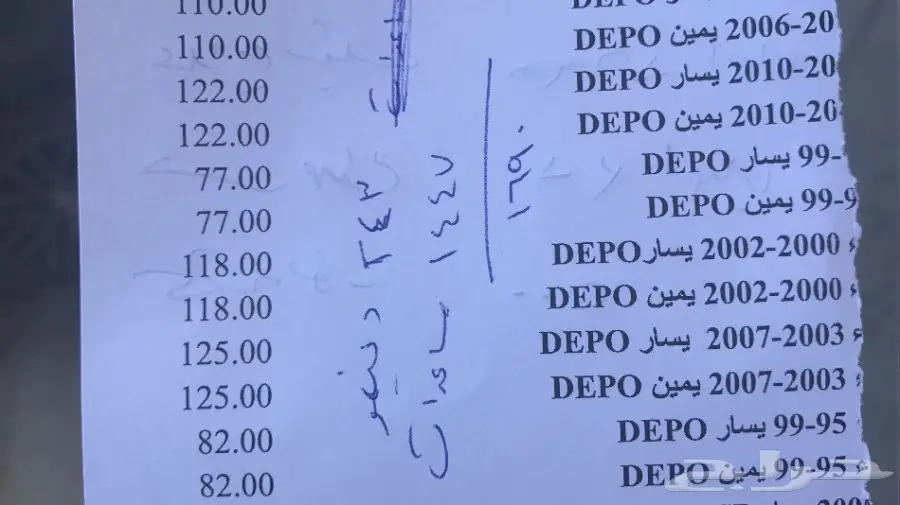 110.00
DEPO
110.00 2006-20 يمين DEPO
122.00 2010-20 يسار DEPO
122.00 2010-20 يمين DEPO
77.00 99- يسار DEPO
77.00 99-9 يمين DEPO
118.00 ء 2000-2002 يسار DEPO
118.00 ء 2000-2002 يمين DEPO
125.00 ء 2003-2007 يسار DEPO
125.00 ء 2003-2007 يمين DEPO
82.00 95-99 يسار DEPO
82.00 ء 95-99 يمين DEPO
٢٤٣
ساعدات ١٤٤٧
١٦٩٠
حراج